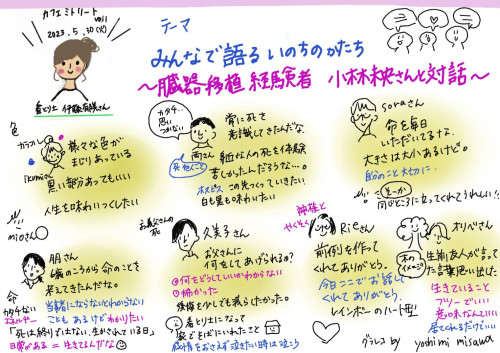 カフェミトリート
vol11
2023.5.30(火)
看とり士 伊藤有咲さん
テーマ
みんなで語るいのちのかたち
〜臓器移植経験者 小林未央さんと対話〜
色
カラフル
ikumiさん
様々な色が
まじりあっている
黒い部分あってもいい
人生を味わいつくしたい
mioさん
カタチ、
思い
つかない
南さん
常に死を
意識してきたんだな
身近な人の死を体験
苦しかったんだろうな…。
ホスピス この先つくっていきたい
白も黒も味わいたい
soraさん
命を毎日
いただいてるな。
大きさは大小あるけど。
自分のこと大切に。
そーか
同じところに立ってくれてうれしい!!
朋さん
6歳のころから命のことを
考えてきたんだな。
命
カタチない
エネルギー
当事者にならないとわからない
こともあるけどわかりたい
「死は終りではない、生かされている日」
日常がある=生きてるんだな
お義父さんの
死
久美子さん
お父さんに
何をしてあげられる?
何をどうしていいかわからない
怖かった
後悔を少しでも減らしたかった。
看とり士になって
家でそばにいれたこと
感情をおさえず泣きたい時は泣こう
神様と
やくそく
Rieさん
前例を作って
くれてありがとう。
今日ここでお話して
くれてありがとう。
レインボーのハート型!
オリベさん
木の
イメージ
生前、友人が言って
た言葉思い出した
生きていること
フツーでいい
意味なんていい
居てくれるだけでいい
グラレコ by yoshimi misawa